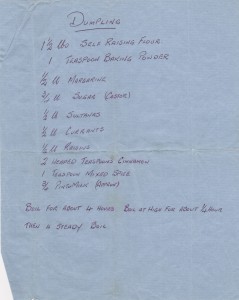 Dumpling
1½ lbs Self Raising Flour
1 Teaspoon Baking Powder
½ lb Margarine
¾ lb Sugar (Castor)
½ lb Sultanas
½ lb Currants
¼ lb Raisins
2 Heaped Teaspoons Cinnamon
1 Teaspoon Mixed Spice
¾ Pint Milk
Boil for about 4 hours. Boil at high for about ½ hour
then a steady boil.